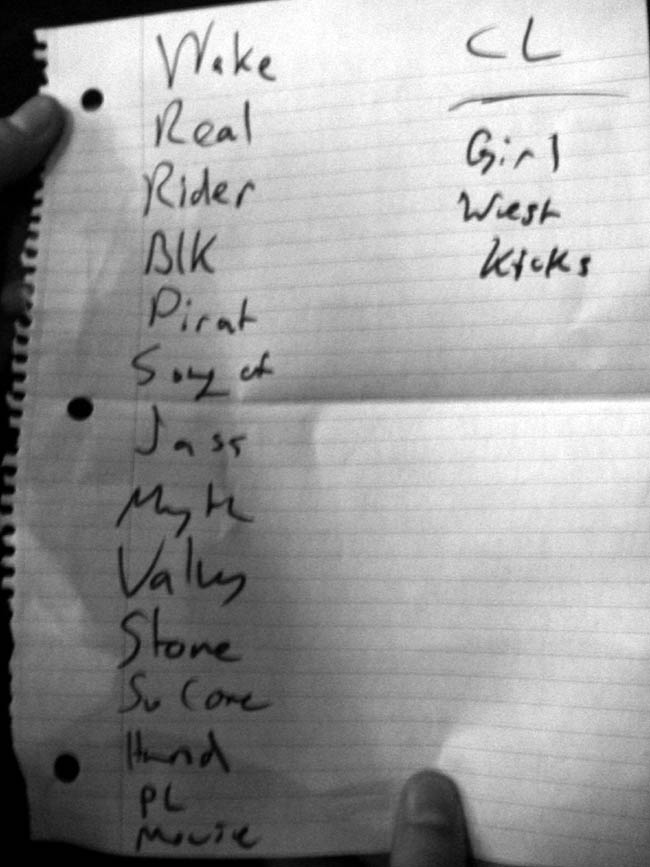 Wake
Real
Rider
Blk
Pirat
Song of
Jass
Myth
Valley
Stone
So Cone
Hand
PL
Movie
CL
Girl
West
Kicks